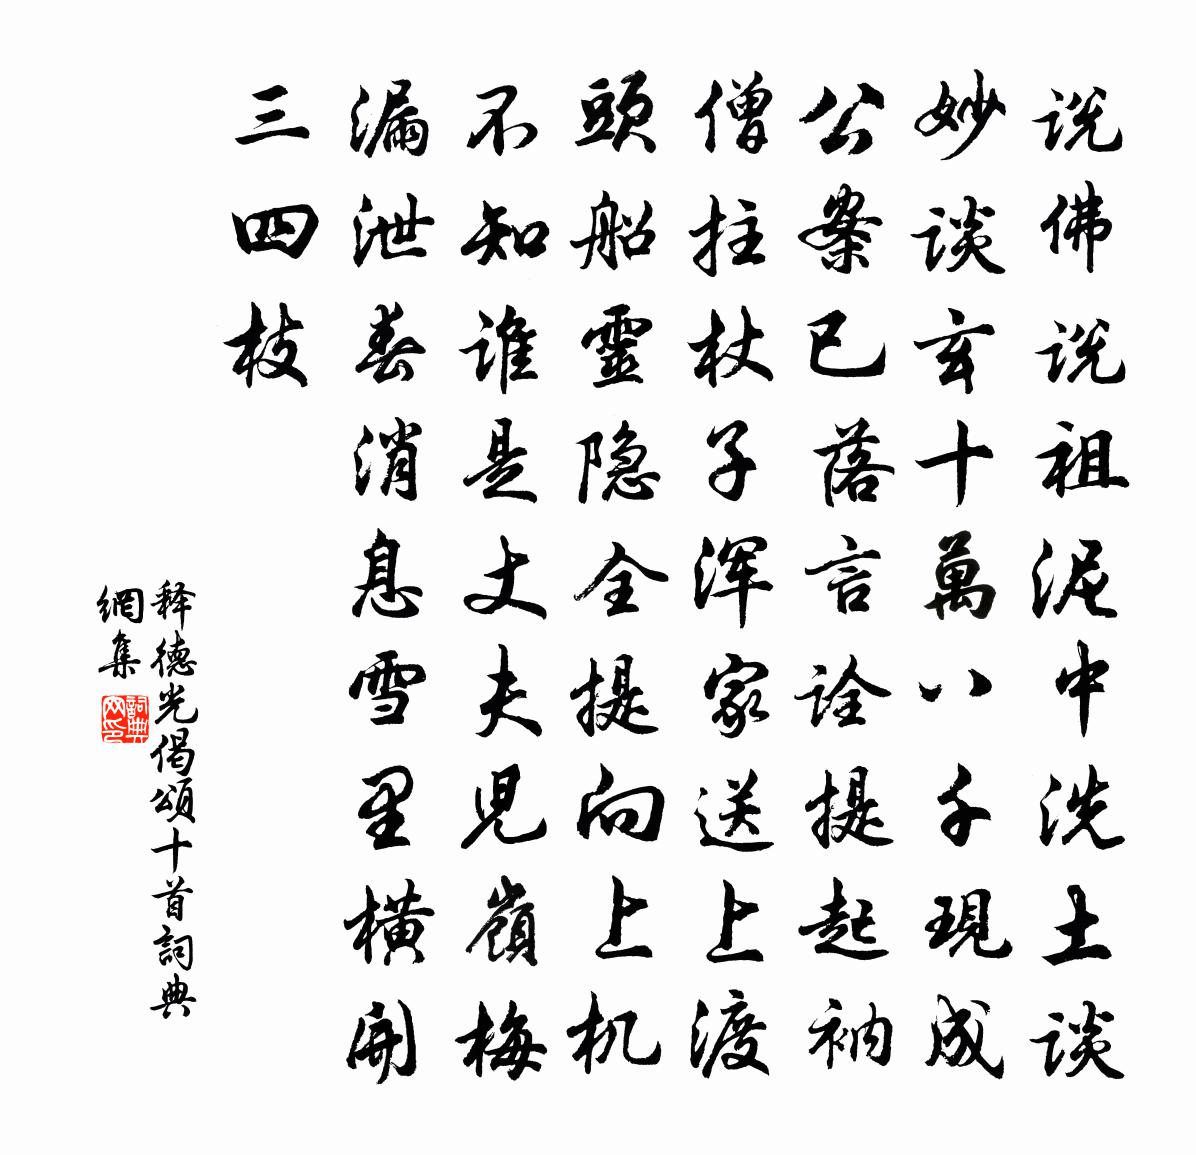 说佛说祖泥中洗土谈
妙谈玄十萬八千現成
公案已落言诠提起衲
僧拄杖子浑家送上渡
頭船靈隐全提向上机
不知谁是丈夫児嶺梅
漏泄春消息雪里横開
三四枝
释德光偈頌十首詞典
網集
詞典
网印